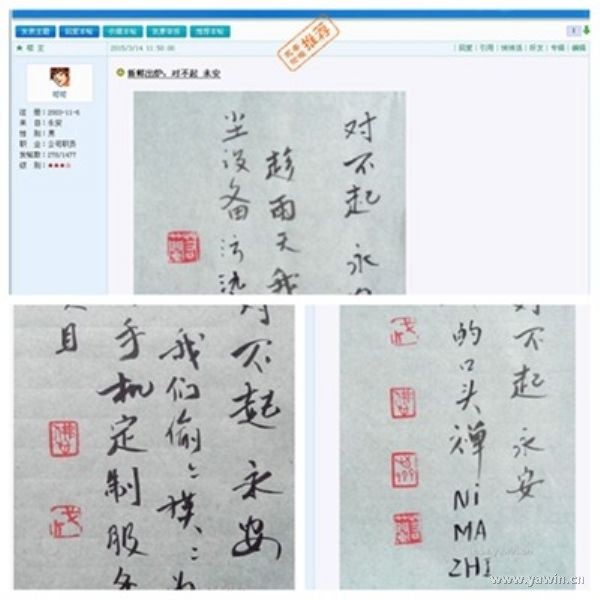 发表主题 回复本帖 收藏本帖 我要举报 推荐本帖
1
★ 楼主
2015/3/14 11:50:00
回复 | 引用 | 悄悄话 | 好友 | 专辑 | 编辑
推荐
可可
注 册：2003-11-6
来 自：永安
性 别：男
职 业：公司职员
发帖数：270/1477
级 别：★★★☆
新鲜出炉：对不起 永安
对不起 永
趁雨天我
尘设备污染
对不起 永安
我们偷:摸:为
手机定制服务
目
对不起 永安
的口头禅 NI MA ZHI
www.yawin.cn